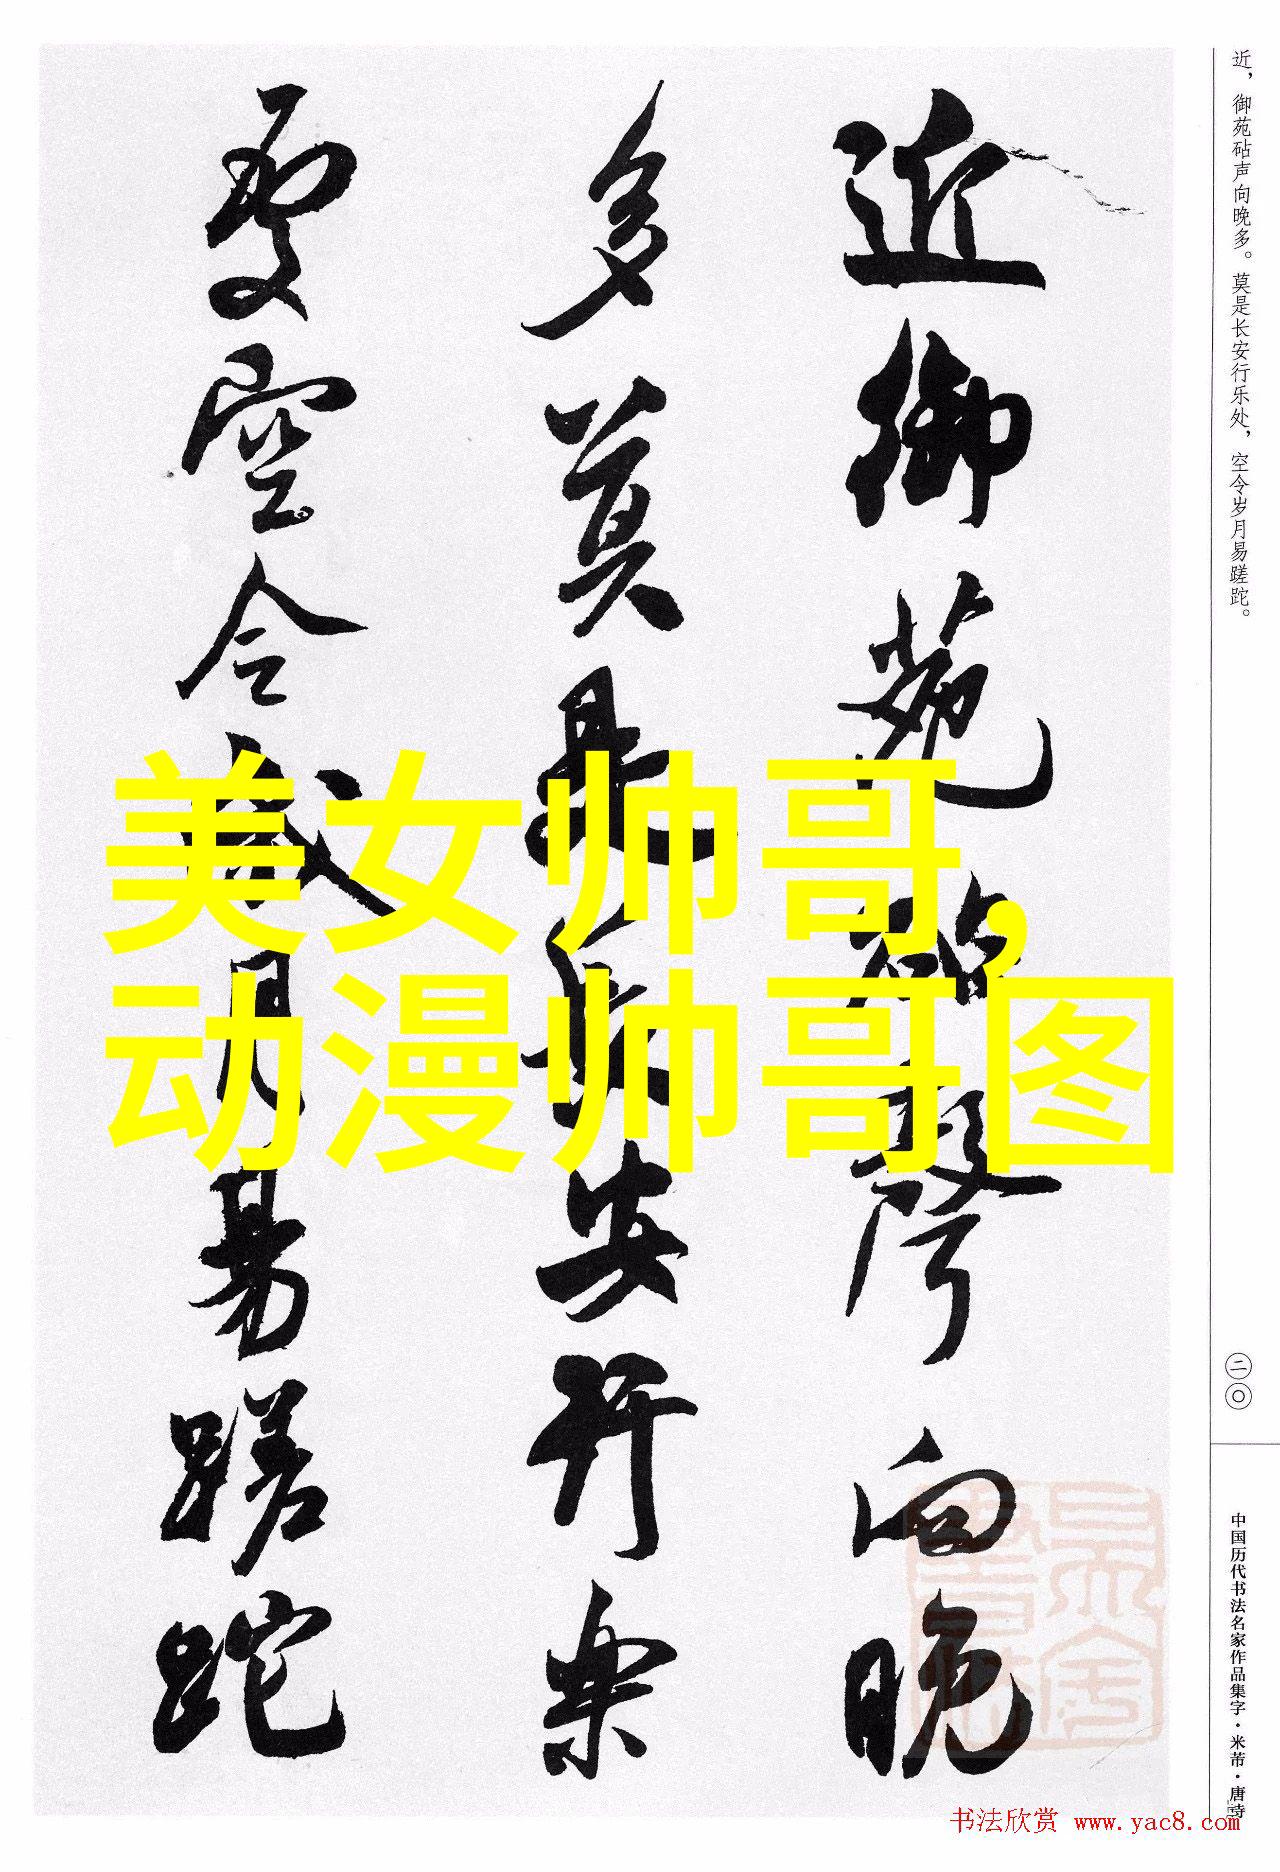 近，御苑砧声向晚多。莫是长安行乐处，空令岁月易蹉跎。
二〇
中国历代书法名家作品集字·米芾·唐诗
近御苑砧聲向晚
多莫是長安行樂
處空令歲月易蹉跎
美女帅哥，
动漫帅哥图
书法欣赏 www.yac8.com